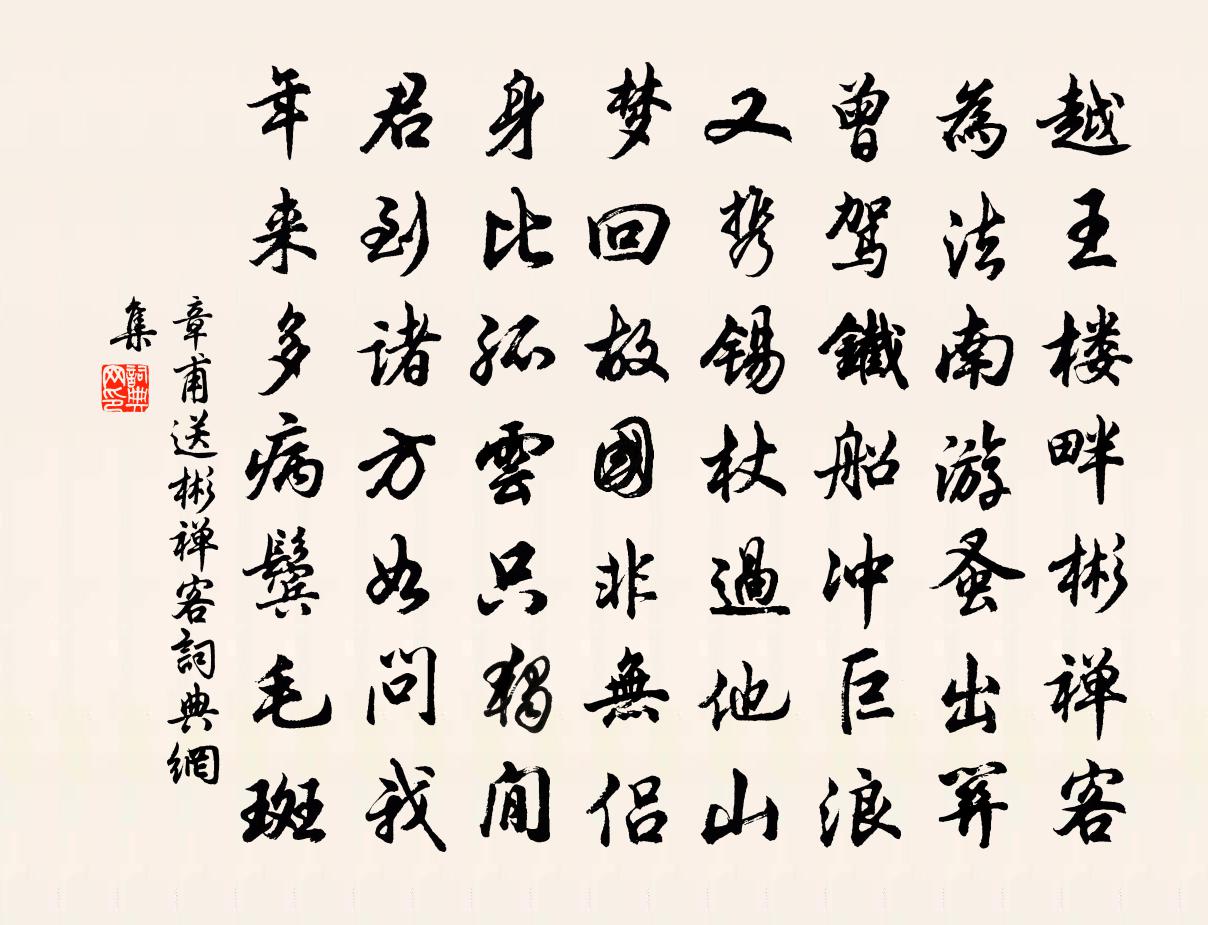 越王楼畔彬禅客
為法南游蚤出関
曾駕鐵船冲巨浪
又携錫杖過他山
梦回故國非無侣
身比孤雲只獨閒
君到诸方如问我
年来多病鬢毛斑
章甫送彬禅客詞典網
集
詞典网印